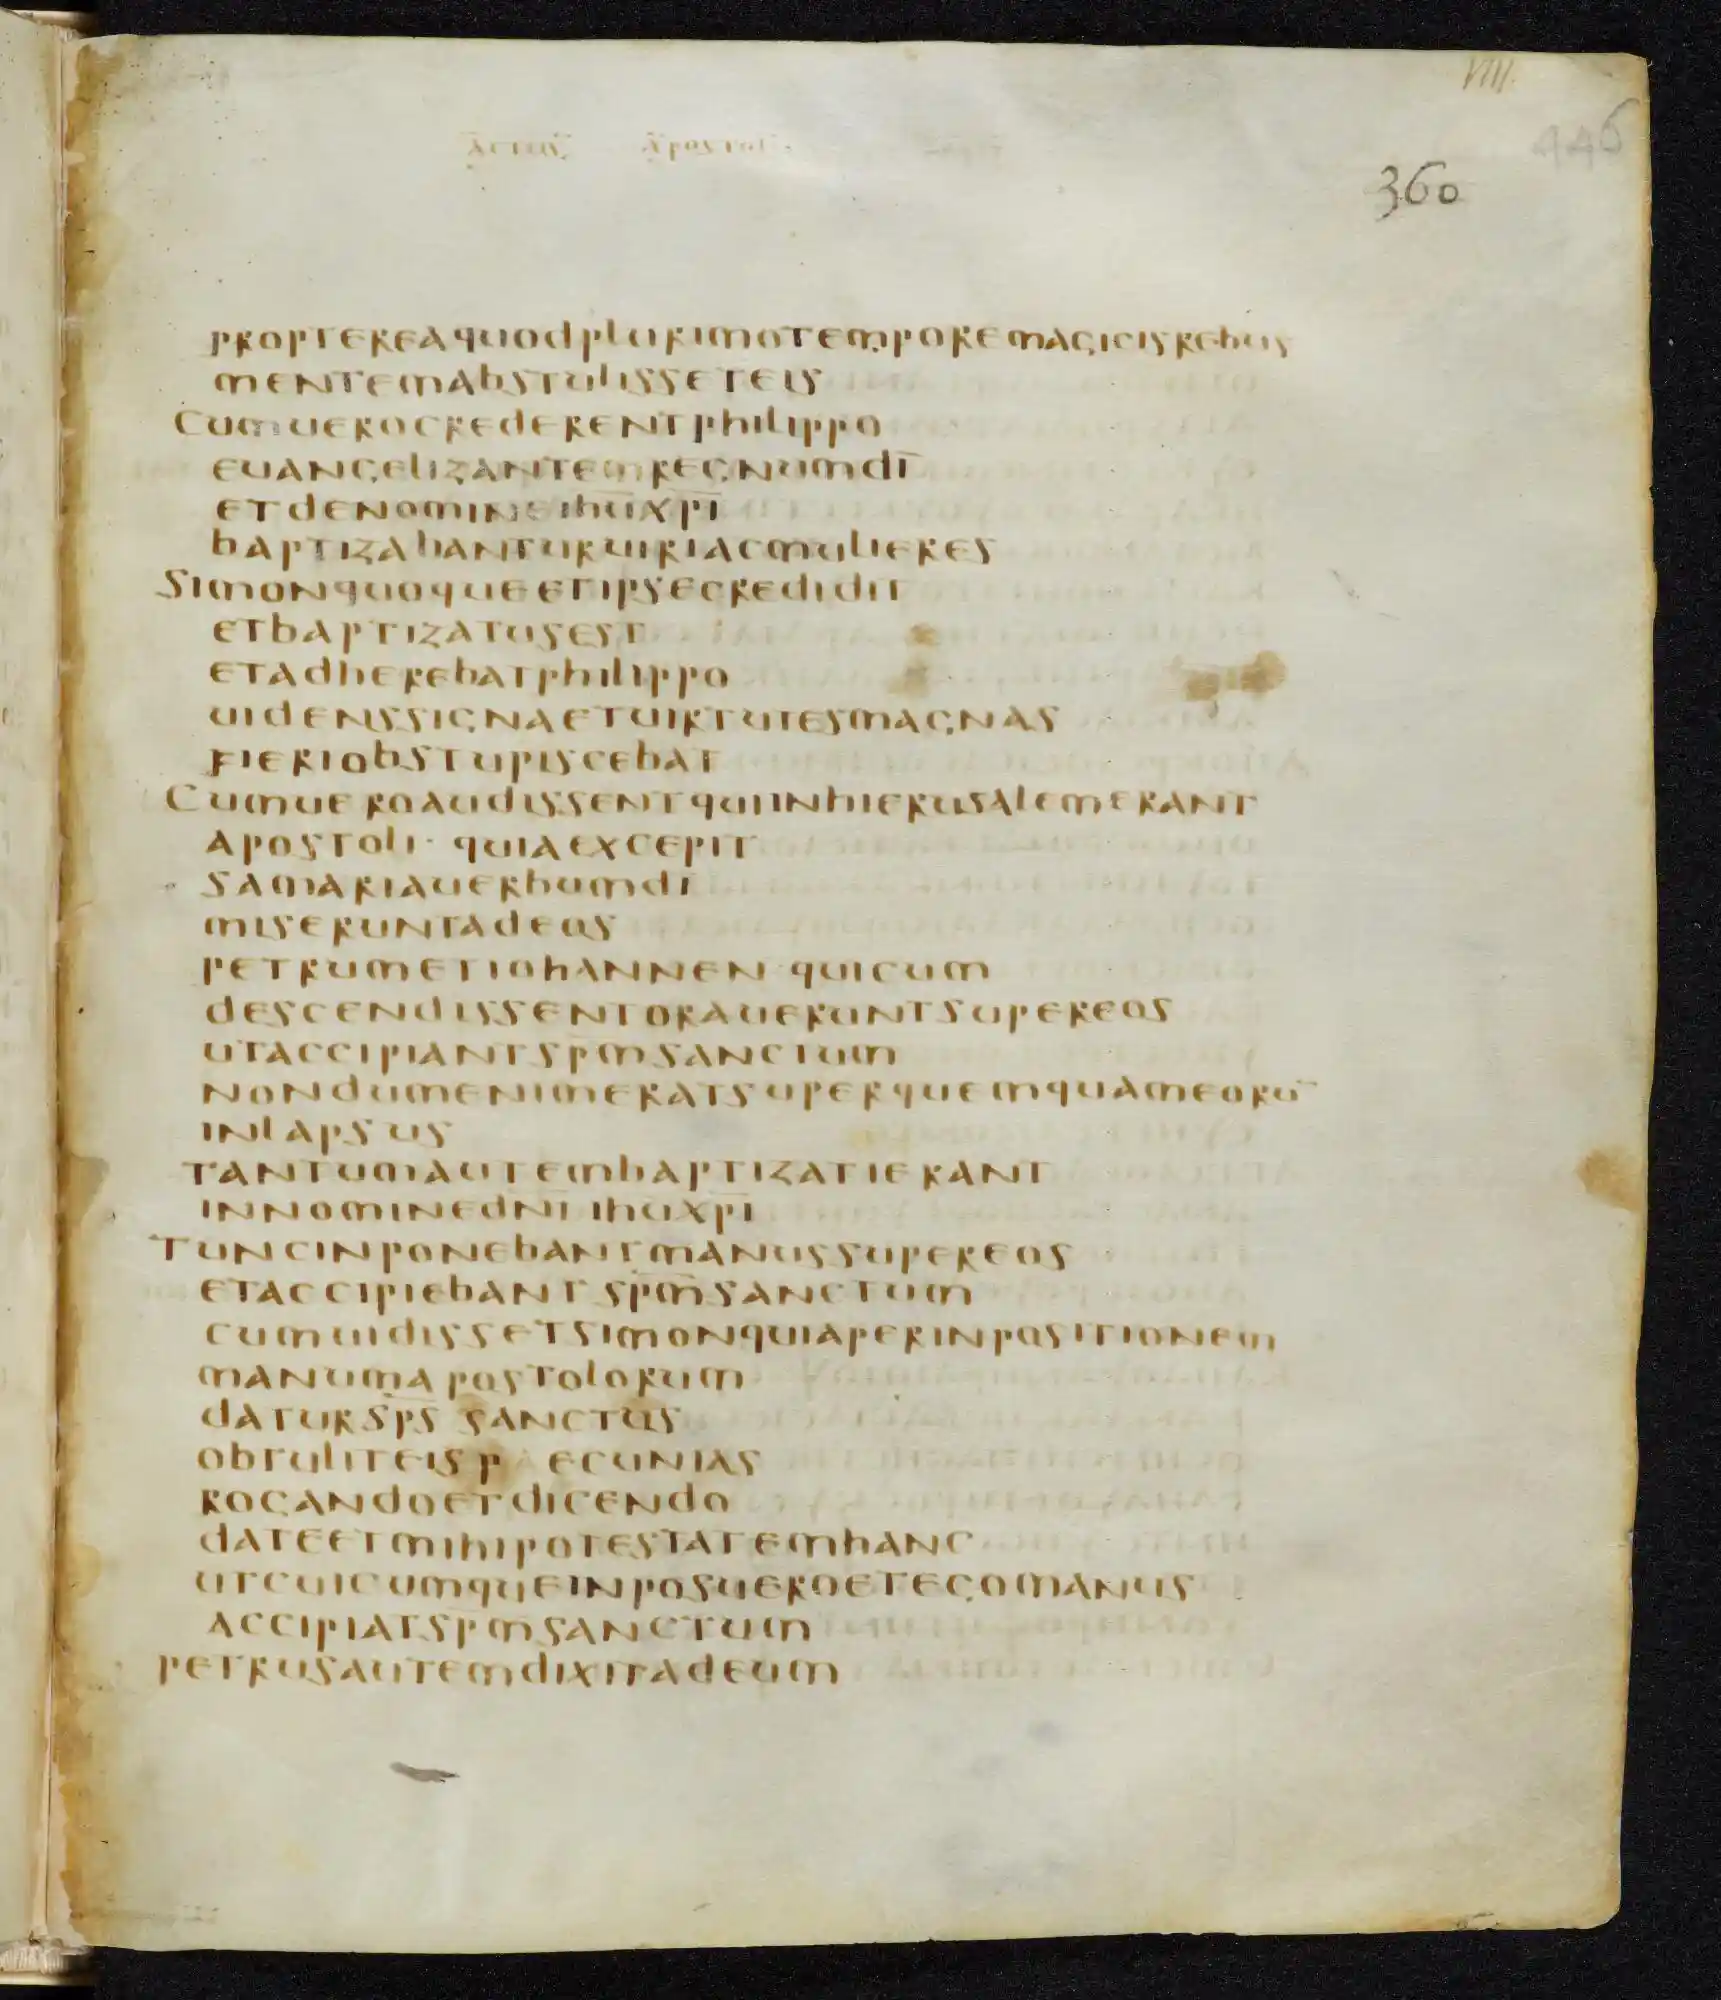 VIII
446
actus apostol
360
propterea quod plurimo tempore magicis rebus
mentem abstulisset eis
Cum uero crederent philippo
euangelizantem regnum dī
et de nomine ihū xpī
baptizabantur uiri ac mulieres
Simon quoque et ipse credidit
et baptizatus est
et adherebat philippo
uidens signa et uirtutes magnas
fieri obstupiscebat
Cum uero audissent qui in hierusalem erant
apostoli · quia excepit
samaria uerbum dī
miserunt ad eos
petrum et iohannen qui cum
descendissent orauerunt super eos
ut accipiant spm̄ sanctum
nondum enim erat super quemquam eorū
inlapsus
tantum autem baptizati erant
in nomine dnī ihū xpī
Tunc inponebant manus super eos
et accipiebant spm̄ sanctum
cum uidisset simon quia per inpositionem
manum apostolorum
datur sps̄ sanctus
obtulit eis p ecunias
rogando et dicendo
date et mihi potestatem hanc
ut cuicumque inposuero et ego manus
accipiat spm̄ sanctum
petrus autem dixit ad eum